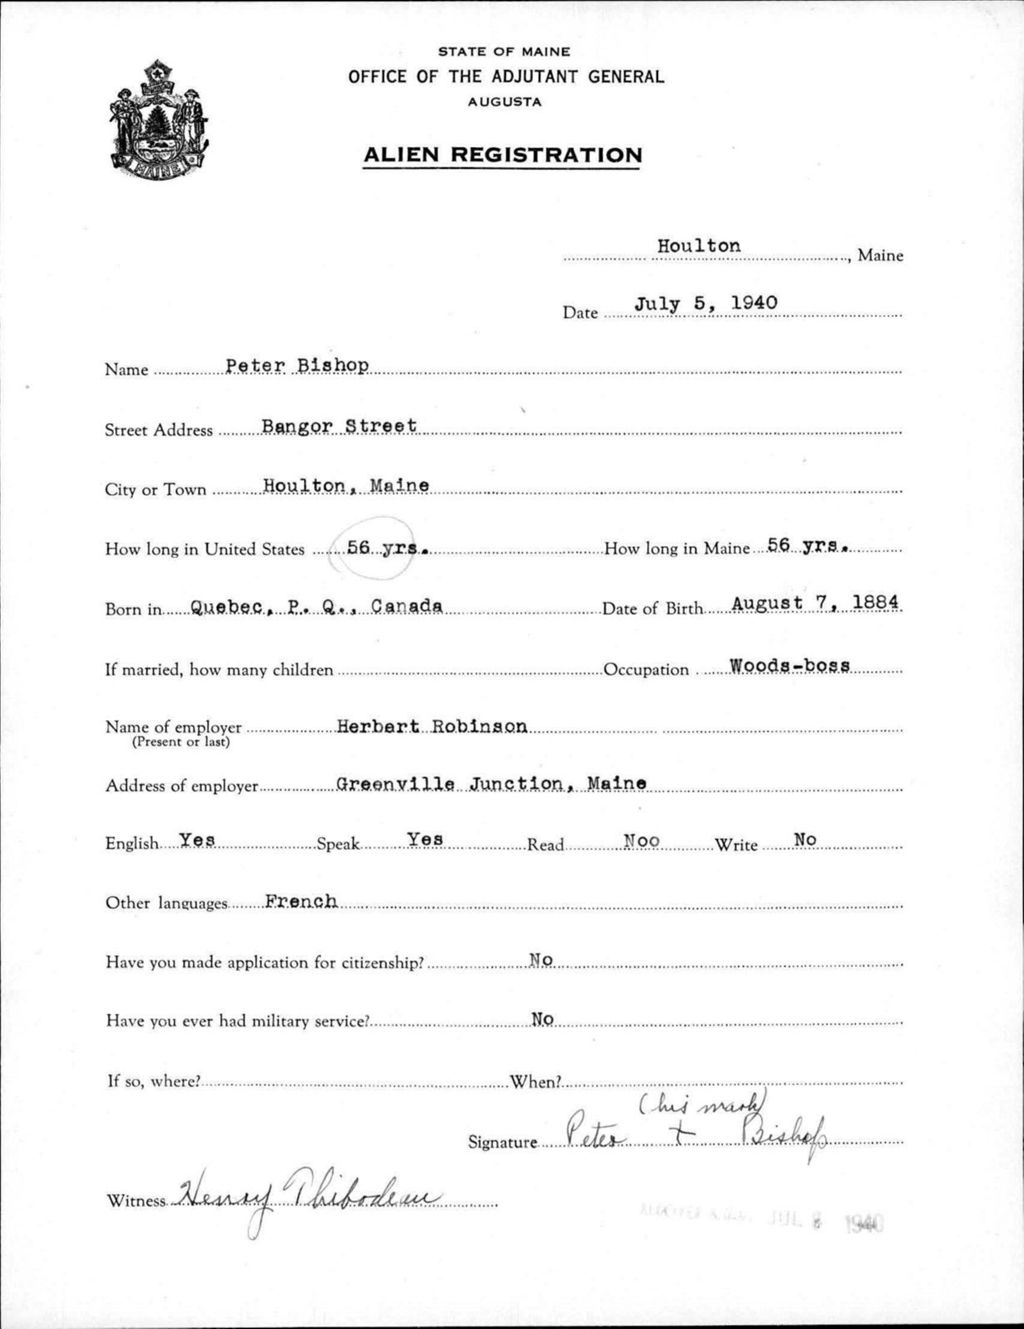 STATE OF MAINE
OFFICE OF THE ADJUTANT GENERAL
AUGUSTA
ALIEN REGISTRATION
MAINE
Houlton, Maine
Date July 5, 1940
Name Peter Bishop
Street Address Bangor Street
City or Town Houlton, Maine
How long in United States 56 yrs. How long in Maine 56 yrs.
Born in Quebec, P. Q., Canada Date of Birth August 7, 1884
If married, how many children Occupation Woods-boss
Name of employer Herbert Robinson
(Present or last)
Address of employer Greenville Junction, Maine
English Yes Speak Yes Read Noo Write No
Other languages French
Have you made application for citizenship? No
Have you ever had military service? No
If so, where? When?
(his mark)
Signature Peter + Bishop
Witness Henry Thibodeau
JUL 8 1940